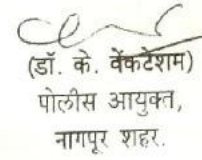 (डॉ. के. वेंकटेशम)
पोलीस आयुक्त,
नागपूर शहर.